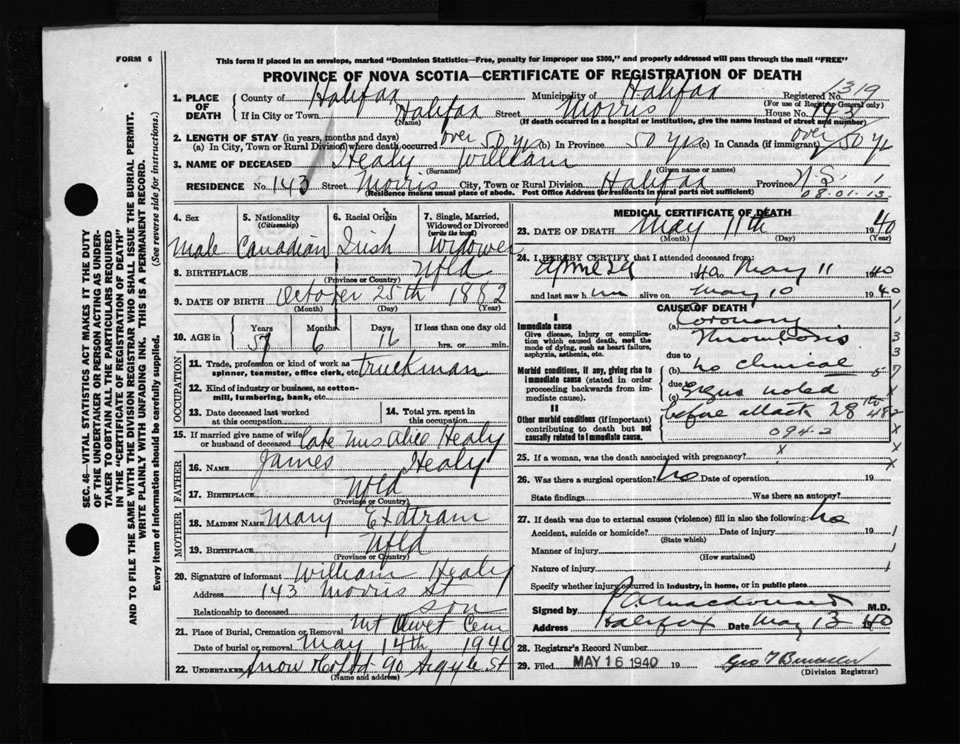 FORM 6
This form if placed in an envelope, marked "Dominion Statistics—Free, penalty for improper use $300," and properly addressed will pass through the mail "FREE"
PROVINCE OF NOVA SCOTIA—CERTIFICATE OF REGISTRATION OF DEATH
1. PLACE OF DEATH
County of Halifax Municipality of Halifax Registered No. 319
(For use of Registrar General only)
If in City or Town Halifax Street Morris House No. 143
(Name) (If death occurred in a hospital or institution, give the name instead of street and number)
2. LENGTH OF STAY (in years, months and days)
(a) In City, Town or Rural Division where death occurred over 50 yrs (b) In Province 50 yrs (c) In Canada (if immigrant) over 50 yr
3. NAME OF DECEASED Healy William
(Surname) (Given name or names)
RESIDENCE No. 143 Street Morris City, Town or Rural Division Halifax Province N.S.
(Residence means usual place of abode. Post Office Address for residents in rural parts not sufficient)
08.01.13
4. Sex Male
5. Nationality (Citizenship) Canadian
6. Racial Origin Irish
7. Single, Married, Widowed or Divorced (write the word) Widower
8. BIRTHPLACE Nfld
(Province or Country)
9. DATE OF BIRTH October 25th 1882
(Month) (Day) (Year)
10. AGE in Years 57 Months 6 Days 16 If less than one day old
hrs. or min.
OCCUPATION
11. Trade, profession or kind of work as spinner, teamster, office clerk, etc. truckman
12. Kind of industry or business, as cotton-mill, lumbering, bank, etc.
13. Date deceased last worked at this occupation
14. Total yrs. spent in this occupation
15. If married give name of wife or husband of deceased Late Mrs Alice Healy
FATHER
16. NAME James Healy
17. BIRTHPLACE Nfld
(Province or Country)
MOTHER
18. MAIDEN NAME Mary
19. BIRTHPLACE Nfld
(Province or Country)
20. Signature of informant William Healy
Address 143 Morris St
Relationship to deceased son
21. Place of Burial, Cremation or Removal Mt Olivet Cem
Date of burial or removal May 14th, 1940
22. UNDERTAKER Snow & Co Ltd 90 Argyle St
(Name and address)
MEDICAL CERTIFICATE OF DEATH
23. DATE OF DEATH May 11th 1940
(Month) (Day) (Year)
24. I HEREBY CERTIFY that I attended deceased from:
April 1940 to May 11 1940
and last saw him alive on May 10 1940
I
Immediate cause
Give disease, injury or complication which caused death, not the mode of dying, such as heart failure, asphyxia, asthenia, etc.
Morbid conditions, if any, giving rise to immediate cause (stated in order proceeding backwards from immediate cause).
II
Other morbid conditions (if important) contributing to death but not causally related to immediate cause.
CAUSE OF DEATH
(a) Coronary
Thrombosis
due to
(b) no clinical
due
(c) signs noted
before attack 28th
094-2
25. If a woman, was the death associated with pregnancy? x
26. Was there a surgical operation? no Date of operation 19
State findings Was there an autopsy?
27. If death was due to external causes (violence) fill in also the following: no
Accident, suicide or homicide? Date of injury 19
(State which)
Manner of injury
(How sustained)
Nature of injury
Specify whether injury occurred in industry, in home, or in public place
Signed by Macdonald M.D.
Address Halifax Date May 13 1940
28. Registrar's Record Number
29. Filed MAY 16 1940 19
(Division Registrar)
SEC. 46—VITAL STATISTICS ACT MAKES IT THE DUTY
OF THE UNDERTAKER OR PERSON ACTING AS UNDER-
TAKER TO OBTAIN ALL THE PARTICULARS REQUIRED
IN THE "CERTIFICATE OF REGISTRATION OF DEATH"
AND TO FILE THE SAME WITH THE DIVISION REGISTRAR WHO SHALL ISSUE THE BURIAL PERMIT.
WRITE PLAINLY WITH UNFADING INK. THIS IS A PERMANENT RECORD.
Every item of Information should be carefully supplied. (See reverse side for instructions.)